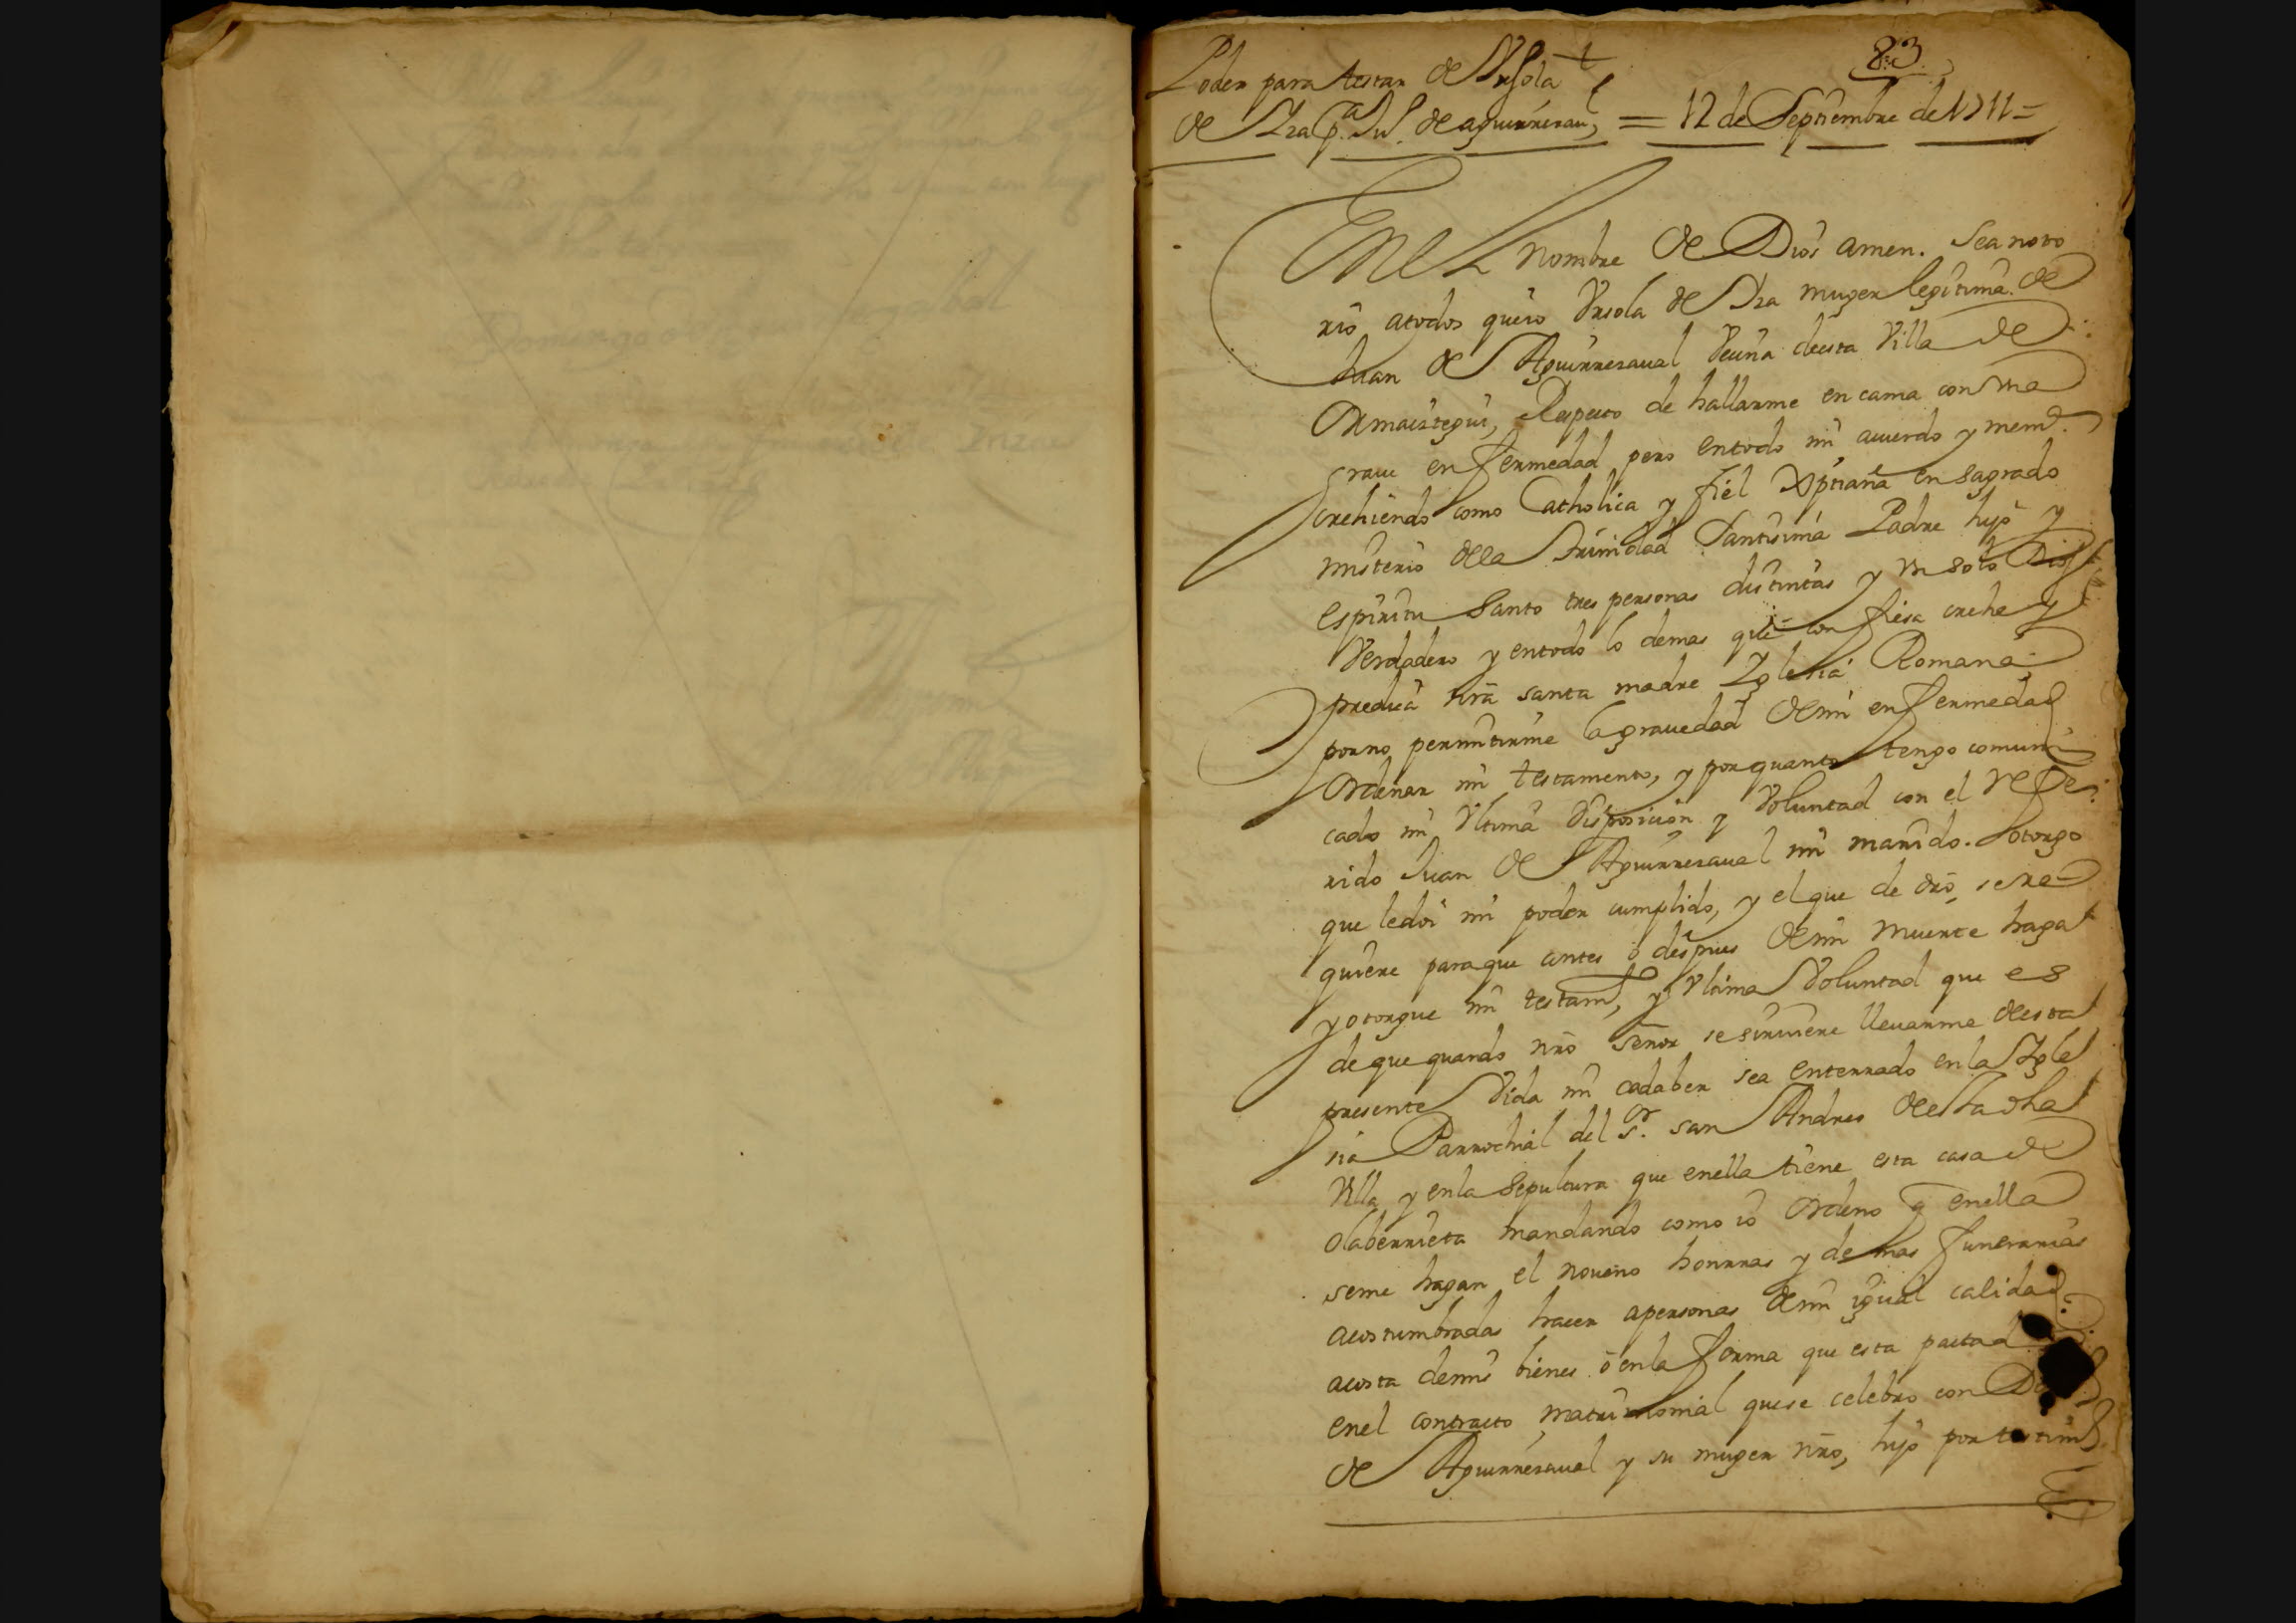 83
Poder para testar de Vrsola
de Yza p.ª Ju.º de aguirresaul, = 12 de Septiembre de 1711 =
En el nombre de Dios amen. Sea noto
rio atodos queio Vrsola de Yza muger legitima de
Juan de Aguirresaual Vecina deesta Villa de
Ormaiztegui, Respecto de hallarme en cama con vna
graue enfermedad pero entodo mi acuerdo y mem.ª
crehiendo como Catholica y fiel Xptiana en sagrado
misterio dela Trinidad Santisima Padre hijo y
espiritu Santo tres personas distintas y vn solo Dios
Verdadero y entodo lo demas que confiesa crehe y
predica nrã santa madre Iglesia Romana
porno permitirme la grauedad demi enfermedad
Ordenar mi testamento, y porquanto tengo comuni
cado mi Vltima disposicion y Voluntad con el refe
rido Juan de Aguirresaual mi marido. otorgo
que ledoi mi poder cumplido, y el que de drõ se re
quiere paraque antes o despues demi muerte haga
y otorgue mi testam.to, y Vltima Voluntad que es
de que quando nrõ Señor se siruiere lleuarme desta
presente Vida mi cadaber sea enterrado en la Igle
sia Parrochial del S.r san Andres desta dha
Villa y enla Sepultura que enella tiene esta casa de
Olaberrieta mandando como io Ordeno q enella
seme hagan el noueno honrras y demas funerarias
acostumbradas hacer apersonas demi igual calidad
acosta demis bienes o enla forma que esta pactad
enel contracto matrimonial quese celebro con
de Aguirresaual y su muger nrõ, hijo por testim.º